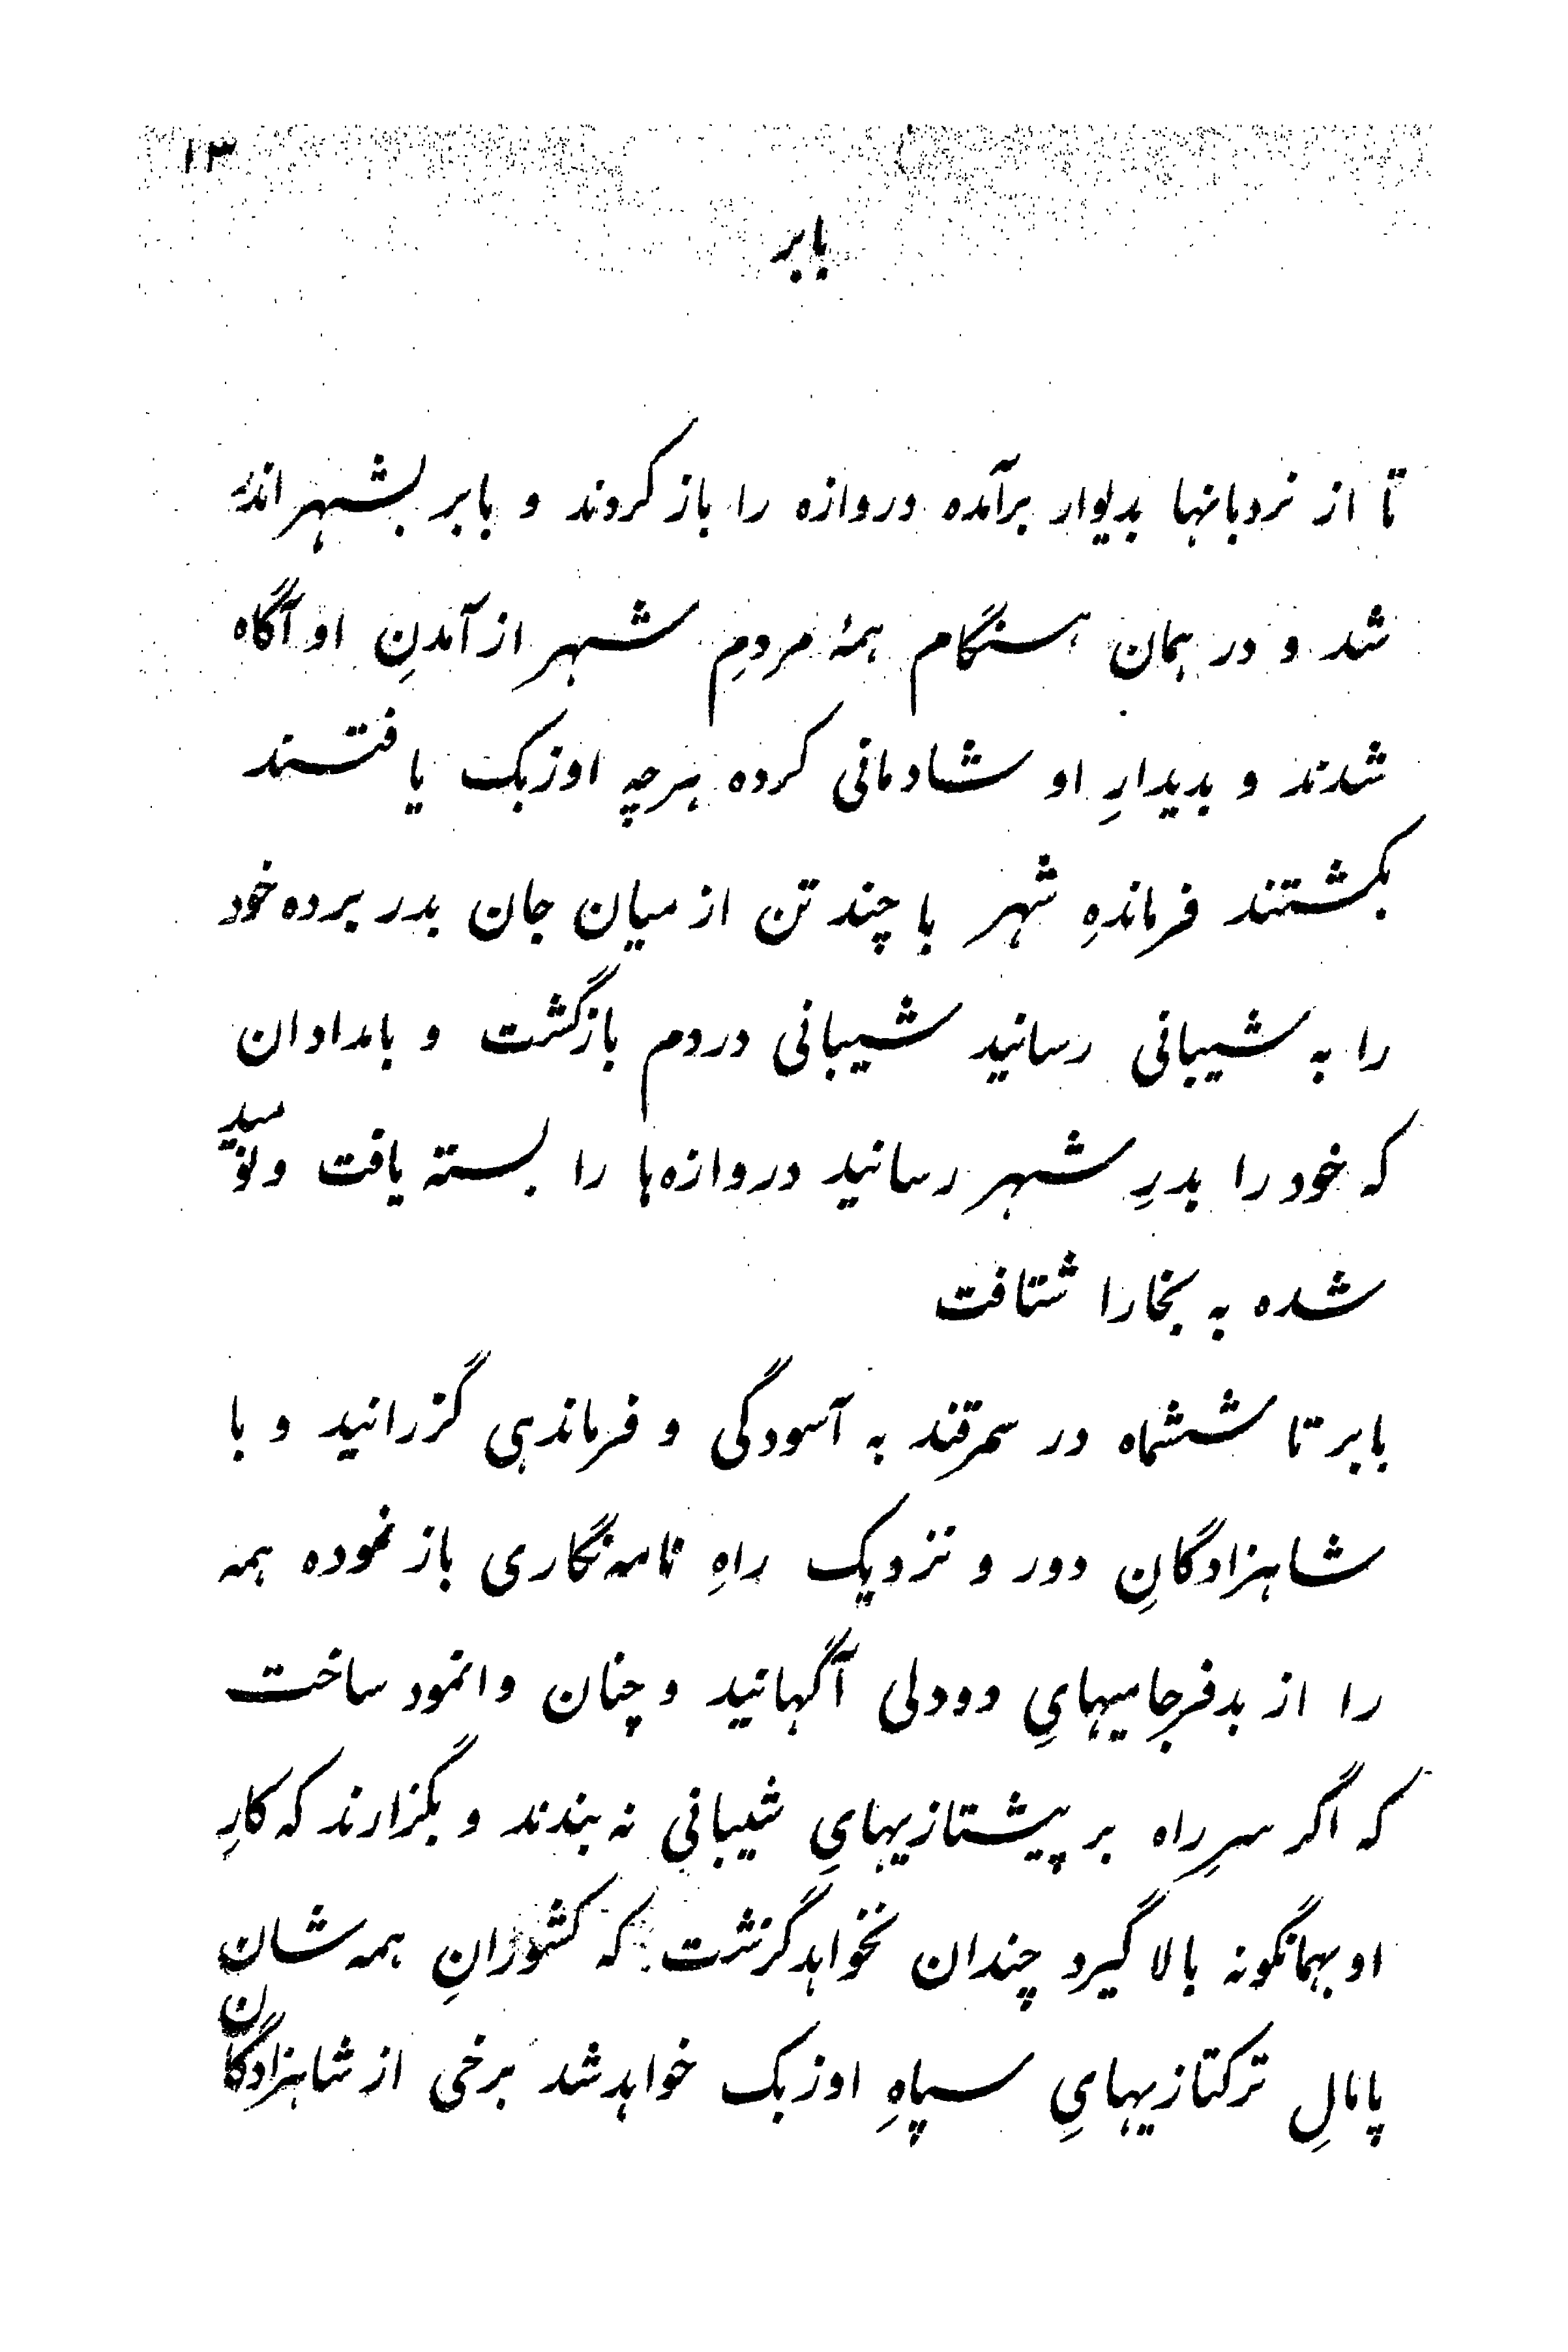 ۱۳
بابر
تا از نردبانها بدیوار برآمده دروازه را باز کردند و بابر بشهر اندر
شد و در همان هنگام همهٔ مردمِ شهر از آمدنِ او آگاه
شدند و بدیدارِ او شادمانی کرده هرچه اوزبک یافتند
بکشتند فرماندهِ شهر با چند تن از میان جان بدر برده خود
را به شیبانی رسانید شیبانی دردم بازگشت و بامدادان
که خود را بدرِ شهر رسانید دروازه‌ها را بسته یافت و نومید
شده به بخارا شتافت
بابر تا ششماه در سمرقند به آسودگی و فرماندهی گزرانید و با
شاهزادگانِ دور و نزدیک راهِ نامه‌نگاری باز نموده همه
را از بدفرجامیهایِ دودلی آگهانید و چنان وانمود ساخت
که اگر سرِ راه بر پیشتازیهایِ شیبانی نه بندند و بگزارند که کارِ
او بهمانگونه بالا گیرد چندان نخواهد گزشت که کشورانِ همه شان
پامالِ ترکتازیهایِ سپاهِ اوزبک خواهد شد برخی از شاهزادگان